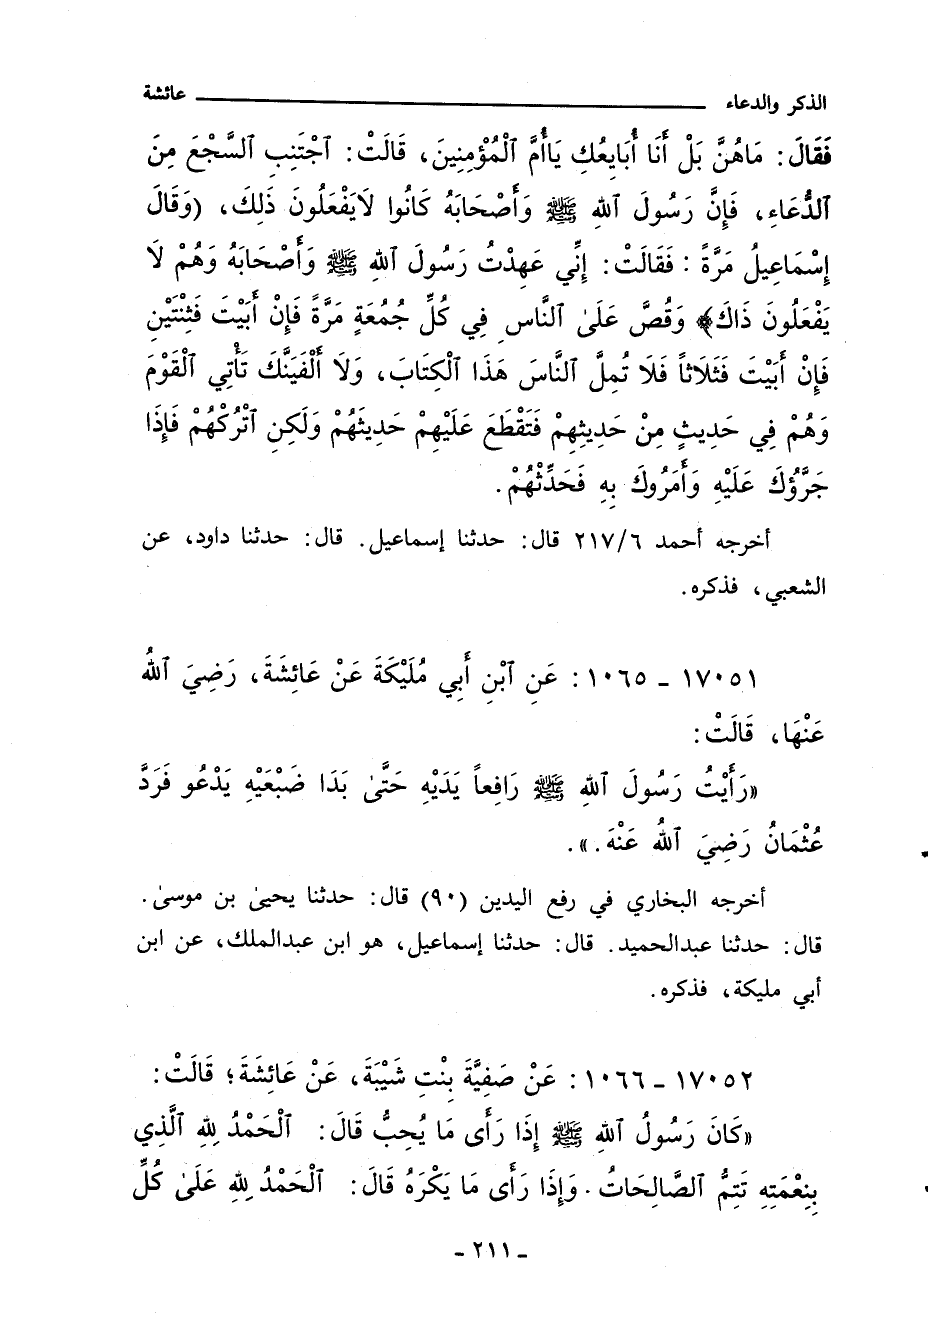 الذكر والدعاء ــــــــ عائشة
فَقَالَ: مَاهُنَّ بَلْ أَنَا أُبَايِعُكِ يَاأُمَّ ٱلْمُؤْمِنِينَ، قَالَتْ: ٱجْتَنِبِ ٱلسَّجْعَ مِنَ
ٱلدُّعَاءِ، فَإِنَّ رَسُولَ ٱللهِ ﷺ وَأَصْحَابَهُ كَانُوا لَايَفْعَلُونَ ذَلِكَ، (وَقَالَ
إِسْمَاعِيلُ مَرَّةً: فَقَالَتْ: إِنِّي عَهِدْتُ رَسُولَ ٱللهِ ﷺ وَأَصْحَابَهُ وَهُمْ لَا
يَفْعَلُونَ ذَاكَ) وَقُصَّ عَلَىٰ ٱلنَّاسِ فِي كُلِّ جُمُعَةٍ مَرَّةً فَإِنْ أَبَيْتَ فَثِنْتَيْنِ
فَإِنْ أَبَيْتَ فَثَلَاثاً فَلَا تُمِلَّ ٱلنَّاسَ هَذَا ٱلْكِتَابَ، وَلَا أُلْفَيَنَّكَ تَأْتِي ٱلْقَوْمَ
وَهُمْ فِي حَدِيثٍ مِنْ حَدِيثِهِمْ فَتَقْطَعَ عَلَيْهِمْ حَدِيثَهُمْ وَلَكِنِ ٱتْرُكْهُمْ فَإِذَا
جَرَّؤُكَ عَلَيْهِ وَأَمَرُوكَ بِهِ فَحَدِّثْهُمْ.
أخرجه أحمد ٢١٧/٦ قال: حدثنا إسماعيل. قال: حدثنا داود، عن
الشعبي، فذكره.
١٧٠٥١ ـ ١٠٦٥: عَنِ ٱبْنِ أَبِي مُلَيْكَةَ عَنْ عَائِشَةَ، رَضِيَ ٱللهُ
عَنْهَا، قَالَتْ:
«رَأَيْتُ رَسُولَ ٱللهِ ﷺ رَافِعاً يَدَيْهِ حَتَّىٰ بَدَا ضَبْعَيْهِ يَدْعُو فَرَدَّ
عُثْمَانُ رَضِيَ ٱللهُ عَنْهَ.».
أخرجه البخاري في رفع اليدين (٩٠) قال: حدثنا يحيىٰ بن موسىٰ.
قال: حدثنا عبدالحميد. قال: حدثنا إسماعيل، هو ابن عبدالملك، عن ابن
أبي مليكة، فذكره.
١٧٠٥٢ ـ ١٠٦٦: عَنْ صَفِيَّةَ بِنْتِ شَيْبَةَ، عَنْ عَائِشَةَ؛ قَالَتْ:
«كَانَ رَسُولُ ٱللهِ ﷺ إِذَا رَأَى مَا يُحِبُّ قَالَ: ٱلْحَمْدُ لِلهِ ٱلَّذِي
بِنِعْمَتِهِ تَتِمُّ ٱلصَّالِحَاتُ. وَإِذَا رَأَى مَا يَكْرَهُ قَالَ: ٱلْحَمْدُ لِلهِ عَلَىٰ كُلِّ
ـ ٢١١ ـ